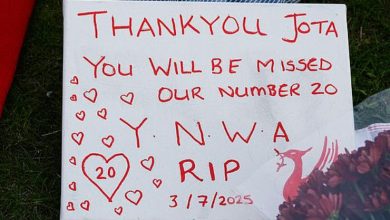 THANKYOU JOTA
YOU WILL BE MISSED
OUR NUMBER 20
Y.N.W.A
20
RIP
3/7/2025